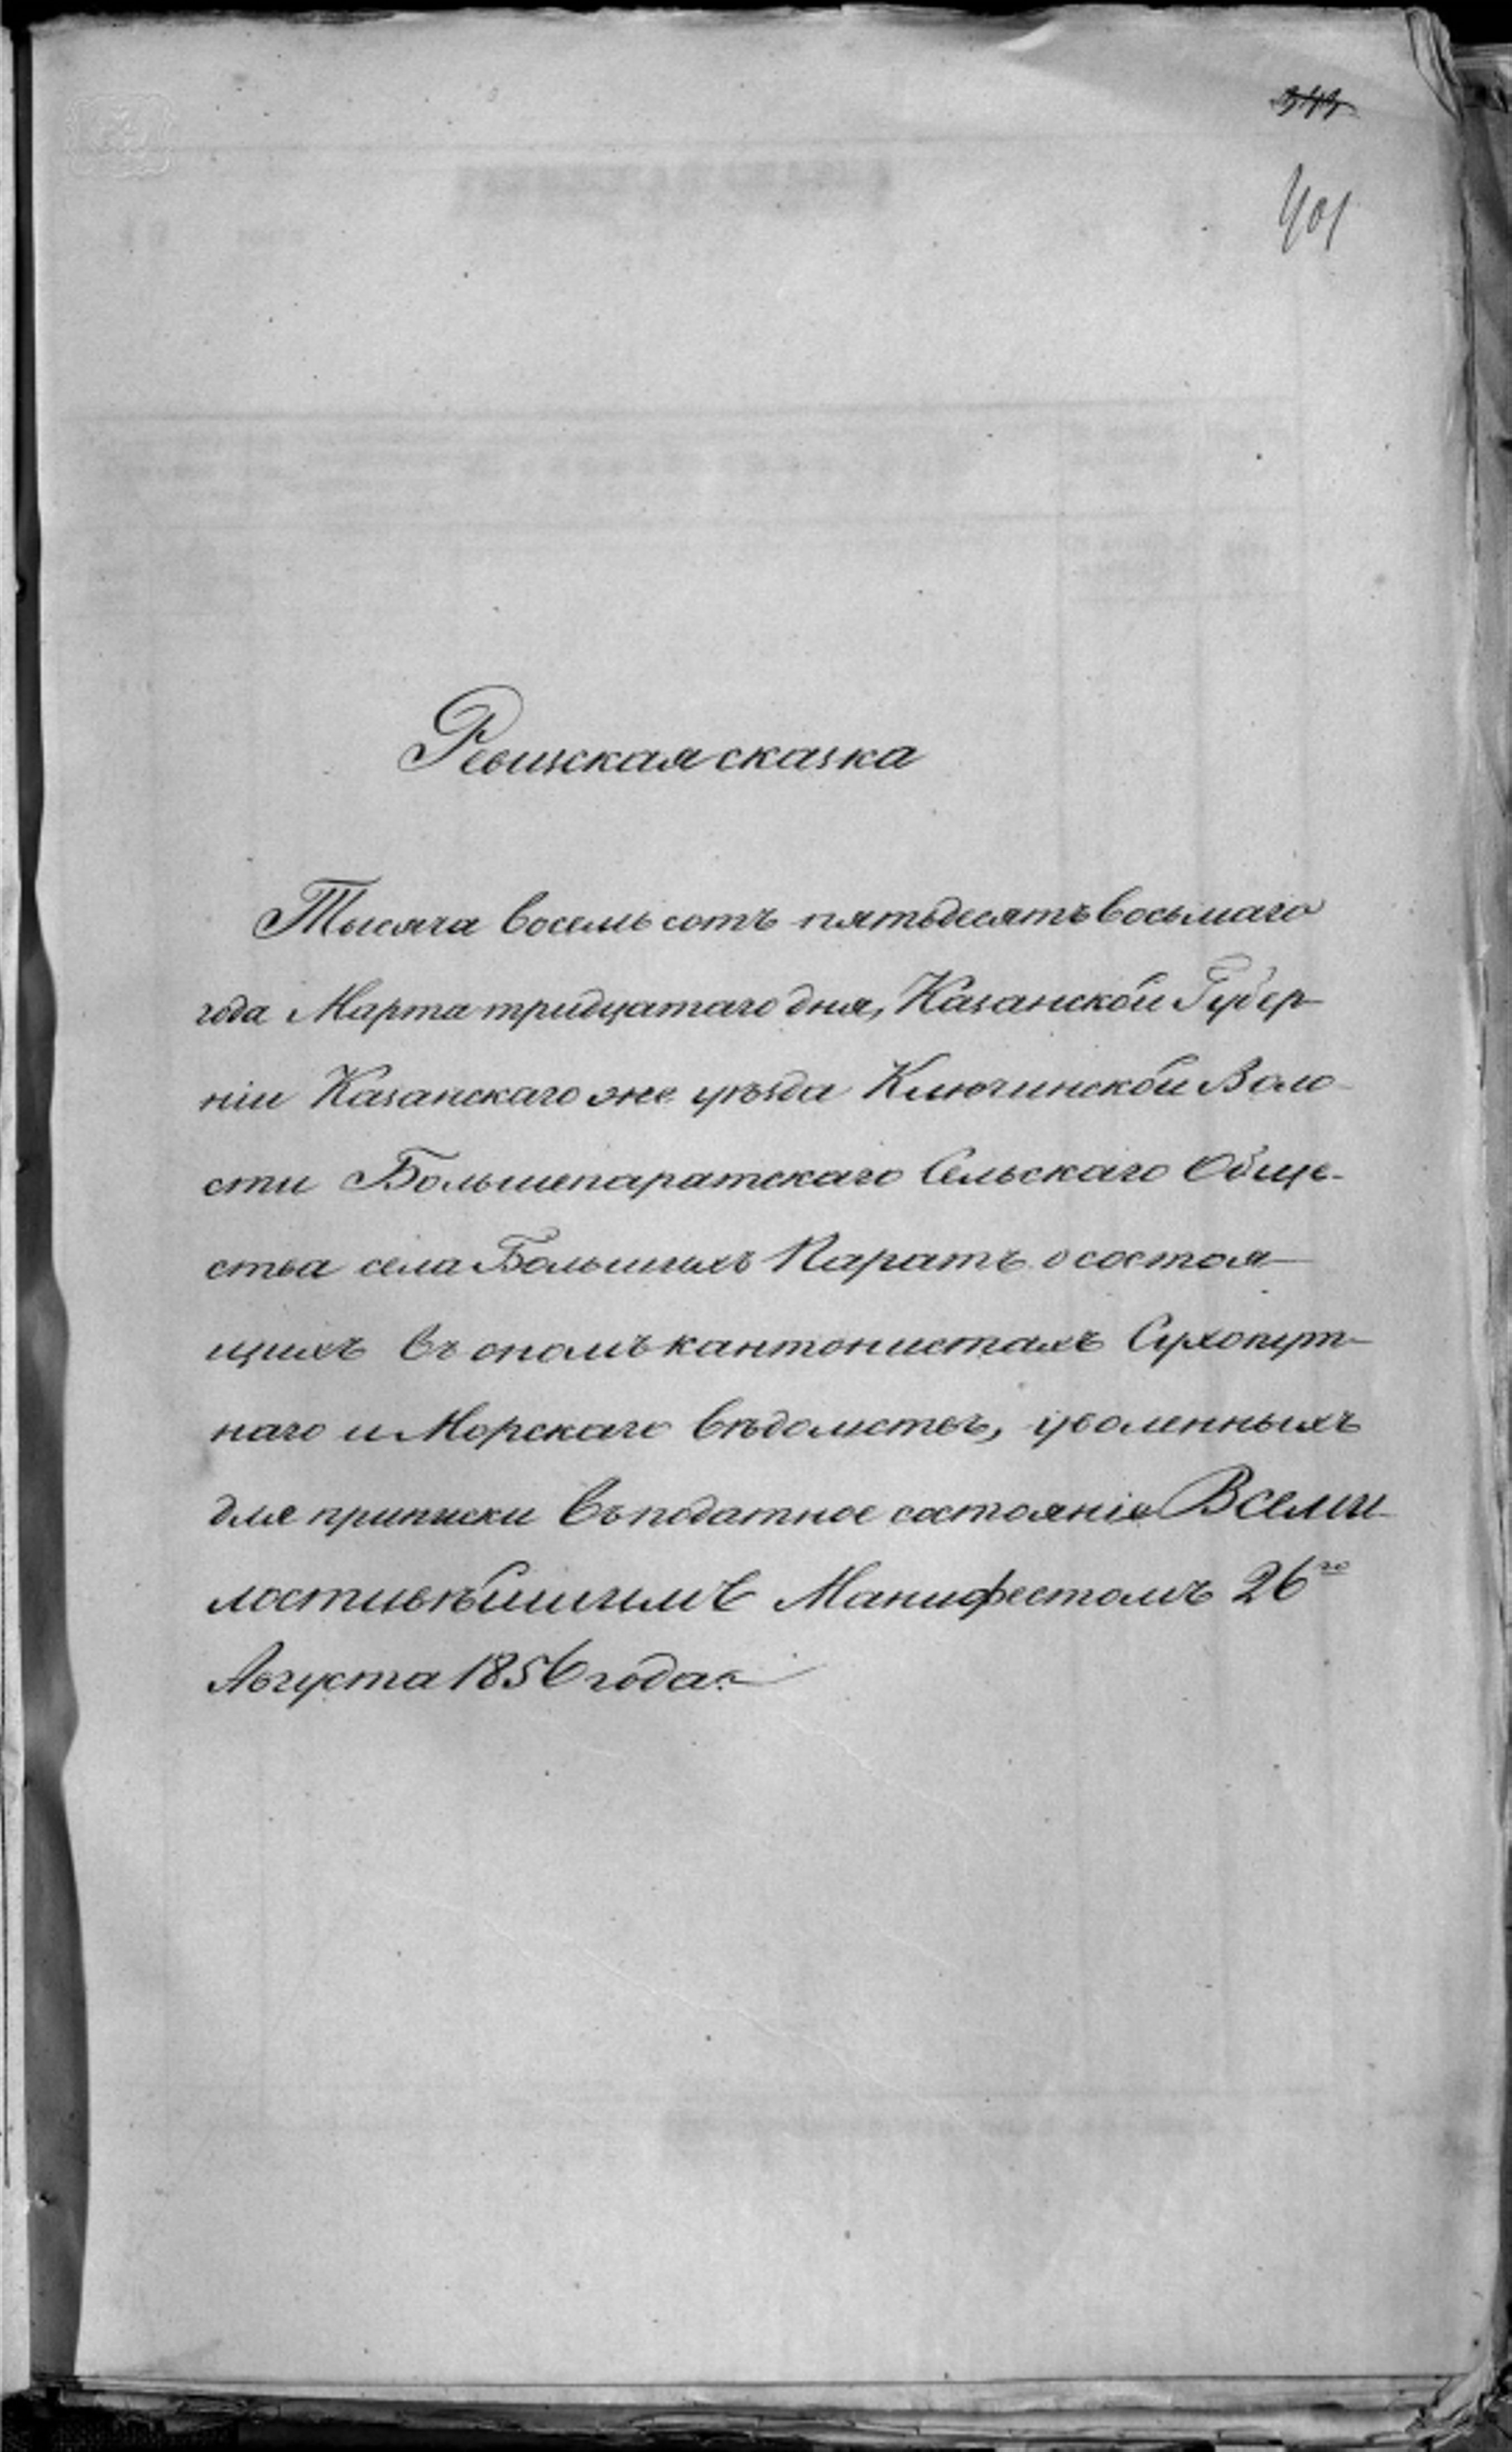 343
401
Ревизская сказка
Тысяча восемь сотъ пятьдесятъ восьмаго
года Марта тридцатаго дня, Казанской Губер-
ніи Казанскаго же уѣзда Ключинской Воло-
сти Большепаратскаго Сельскаго Обще-
ства села Большихъ Паратъ о состоя-
щихъ въ ономъ кантонистахъ Сухопут-
наго и Морскаго вѣдомствъ, уволенныхъ
для приписки въ податное состояніе Всеми-
лостивѣйшимъ Манифестомъ 26го
Августа 1856 года.